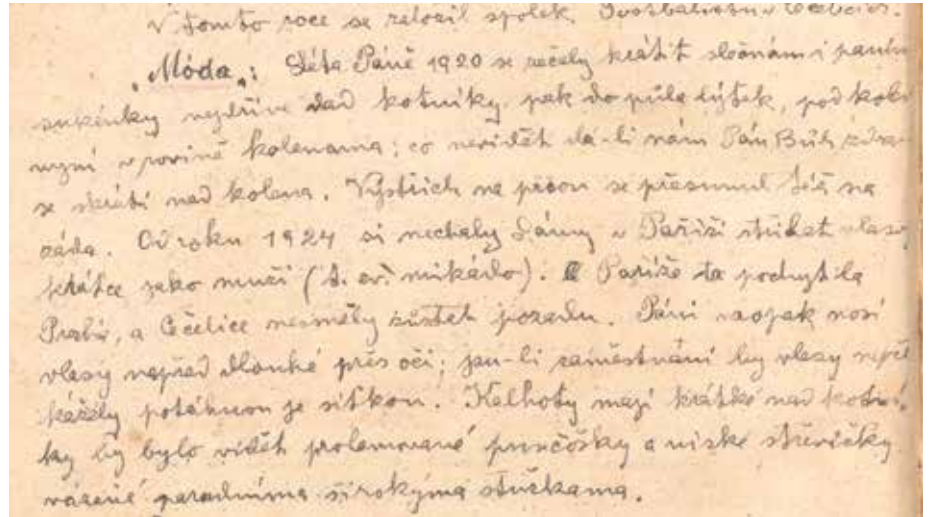 V tomto roce se založil spolek
"Móda": Léta Páně 1920 se začaly krátit slečnám i paním
sukénky nejdříve nad kotníky, pak do půle lýtek, pod kole
nyní v rovině kolenama; co nevidět dá-li nám Pán Bůh zdraví
se zkrátí nad kolena. Výstřih na prsou se přesunul též na
záda. Od roku 1924 si nechaly dámy v Paříži stříhat vlasy
krátce jako muži (t. zv. mikádo). Paříže to pochytila
Praha, a Čečelice nesměly zůstat pozadu. Páni naopak nosí
vlasy napřed dlouhé přes oči; jsou-li zaměstnáni by vlasy
kážely potáhnou je síťkou. Kalhoty mají krátké nad kotní-
ky by bylo vidět prolamované punčošky a nízké střevíčky
vázané parádníma širokýma stužkama.